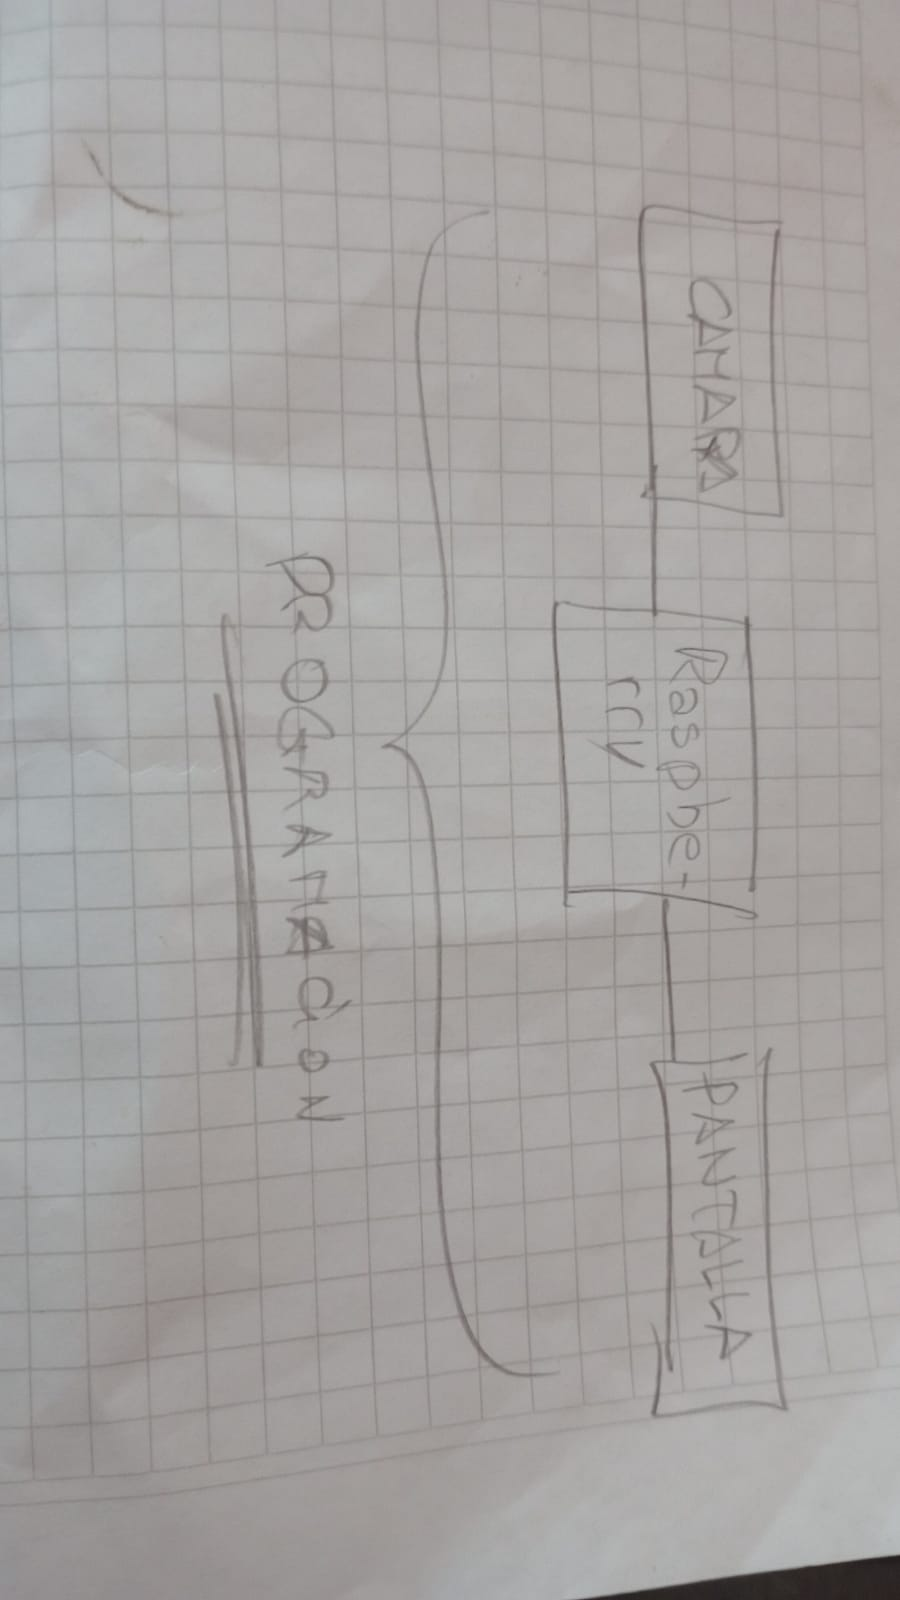 CAMARA
Raspbe-
rry
PANTALLA
PROGRAMACION